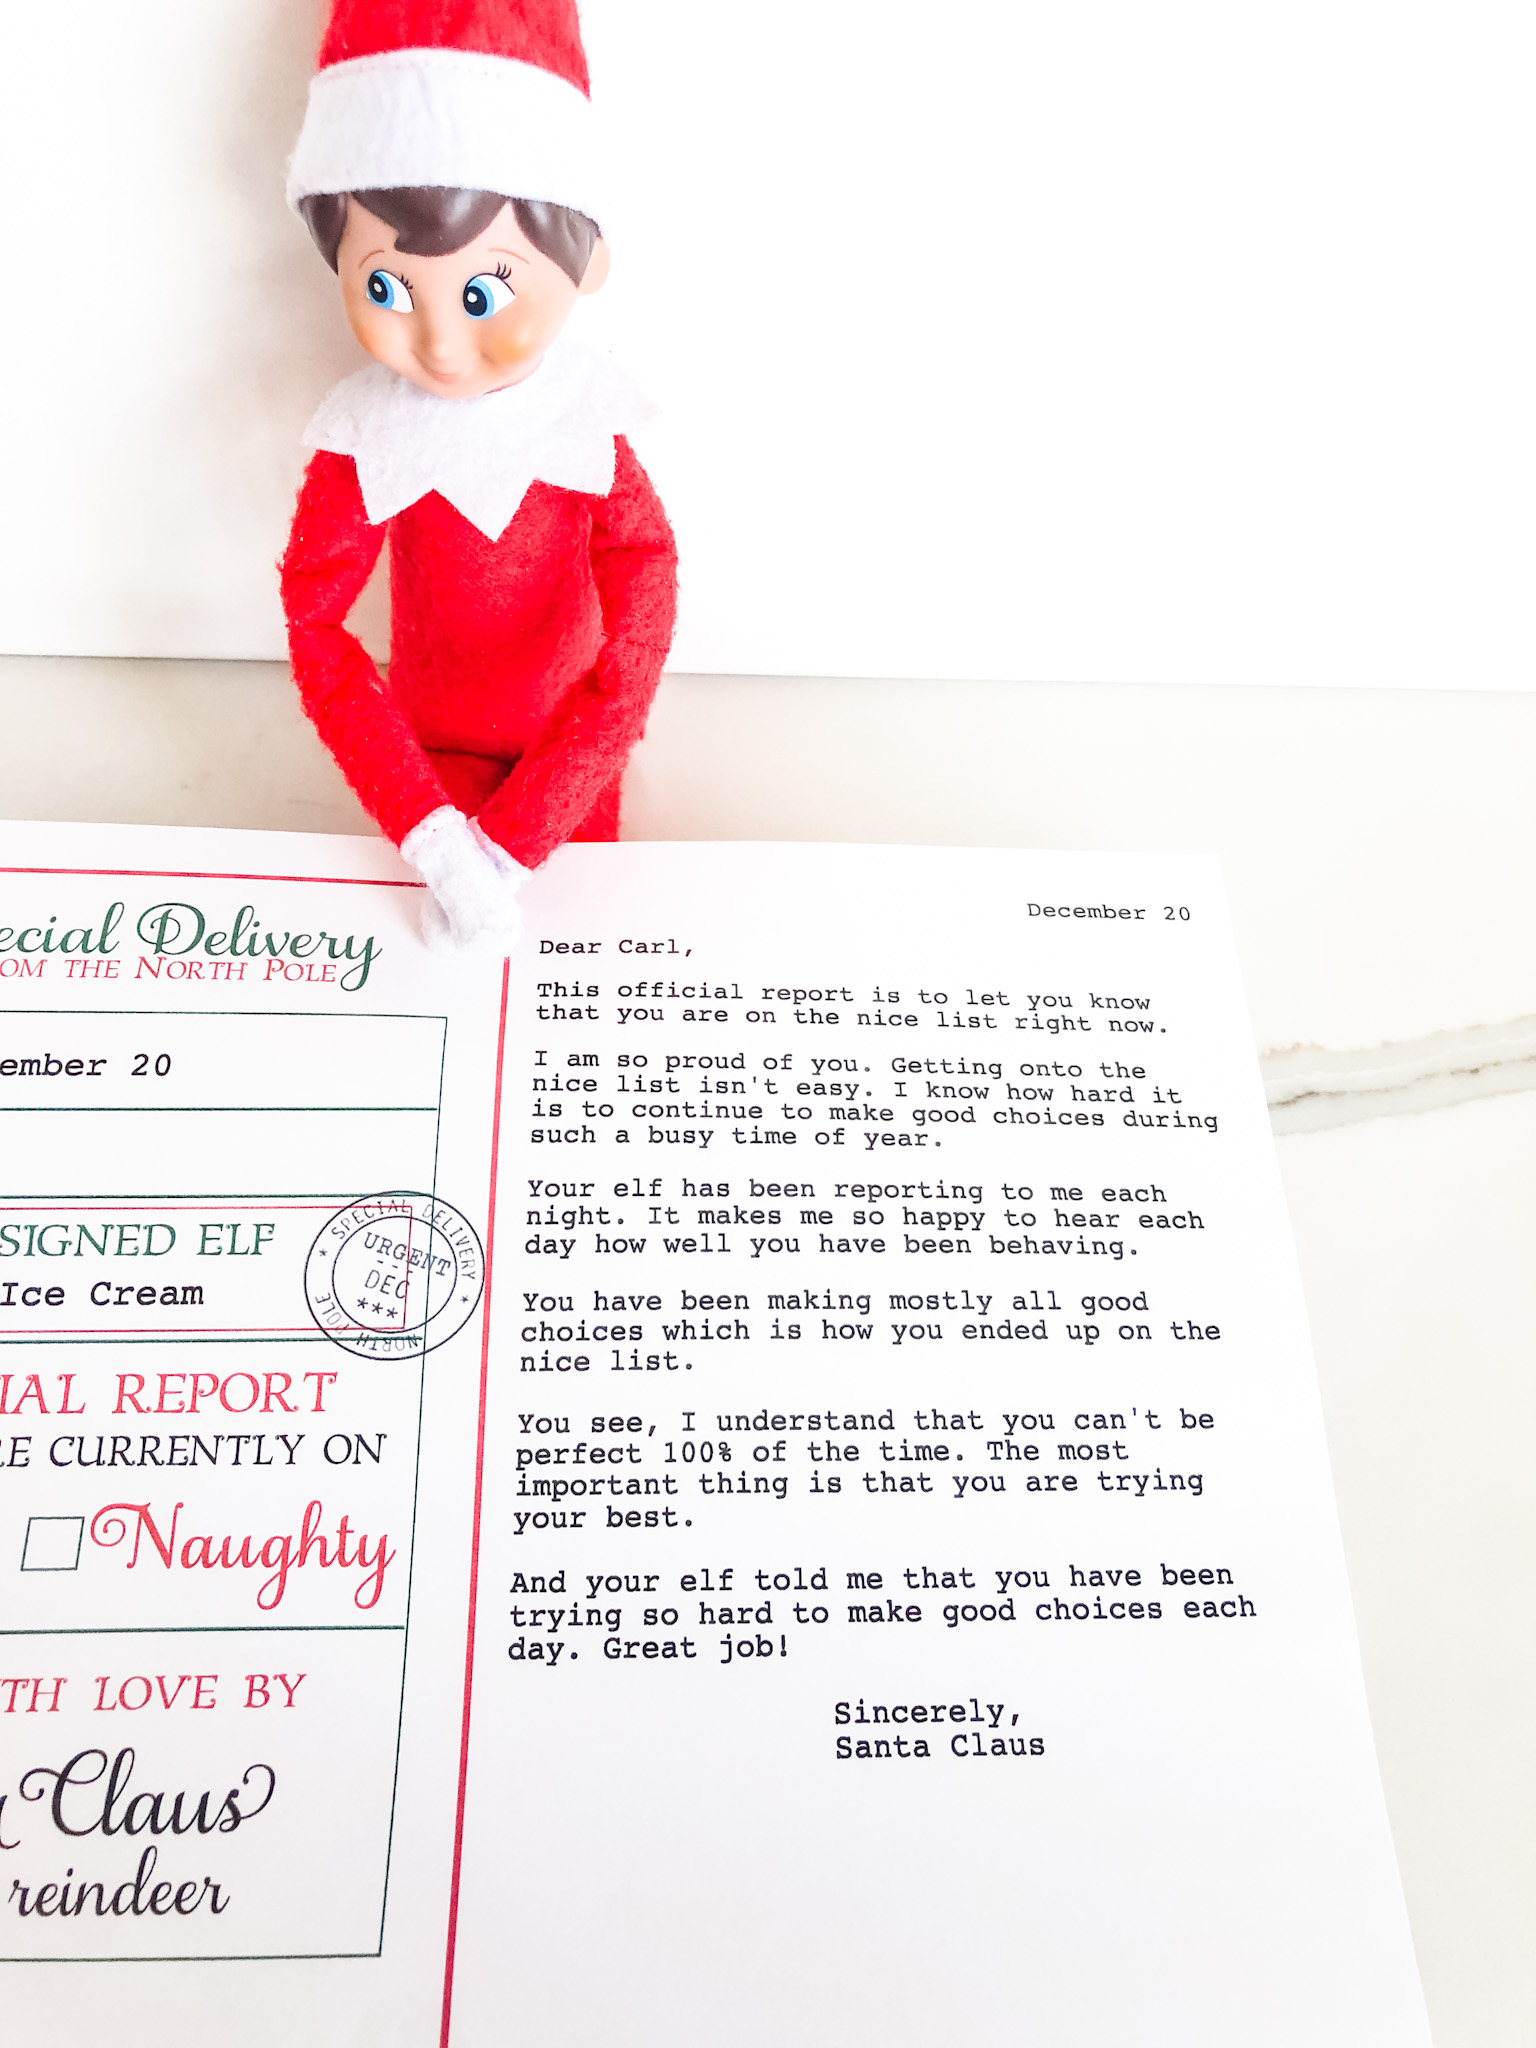 Special Delivery
FROM THE NORTH POLE
December 20
ASSIGNED ELF
Ice Cream
SPECIAL DELIVERY
URGENT
DEC
***
NORTH POLE
REPORT
CURRENTLY ON
Naughty
LOVE BY
Claus
reindeer
December 20
Dear Carl,
This official report is to let you know
that you are on the nice list right now.
I am so proud of you. Getting onto the
nice list isn't easy. I know how hard it
is to continue to make good choices during
such a busy time of year.
Your elf has been reporting to me each
night. It makes me so happy to hear each
day how well you have been behaving.
You have been making mostly all good
choices which is how you ended up on the
nice list.
You see, I understand that you can't be
perfect 100% of the time. The most
important thing is that you are trying
your best.
And your elf told me that you have been
trying so hard to make good choices each
day. Great job!
Sincerely,
Santa Claus